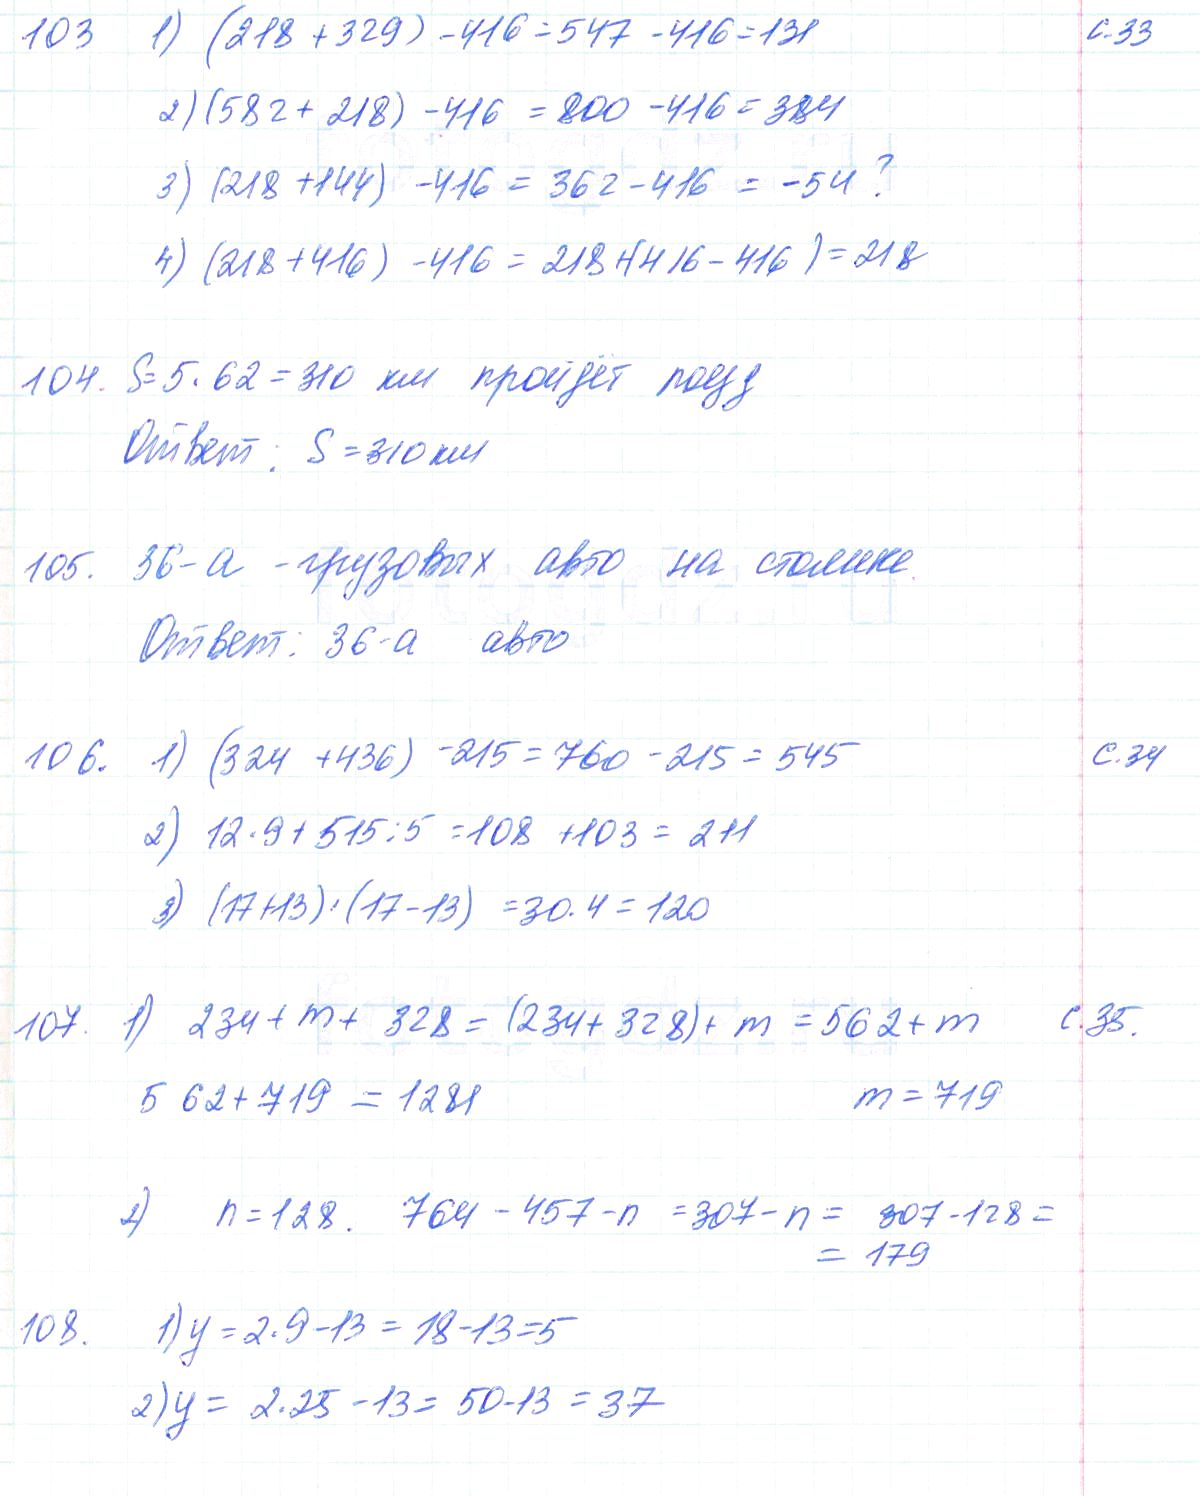 103 1) (218 + 329) - 416 = 547 - 416 = 131 с.33
2) (582 + 218) - 416 = 800 - 416 = 384
3) (218 + 144) - 416 = 362 - 416 = -54 ?
4) (218 + 416) - 416 = 218 + (416 - 416) = 218
104. S = 5 · 62 = 310 км пройдёт поезд
Ответ: S = 310 км
105. 36 - а - грузовых авто на стоянке
Ответ: 36 - а авто
106. 1) (324 + 436) - 215 = 760 - 215 = 545 с.34
2) 12 · 9 + 515 : 5 = 108 + 103 = 211
3) (17 + 13) · (17 - 13) = 30 · 4 = 120
107. 1) 234 + m + 328 = (234 + 328) + m = 562 + m с.35.
562 + 719 = 1281 m = 719
2) n = 128. 764 - 457 - n = 307 - n = 307 - 128 =
= 179
108. 1) y = 2 · 9 - 13 = 18 - 13 = 5
2) y = 2 · 25 - 13 = 50 - 13 = 37